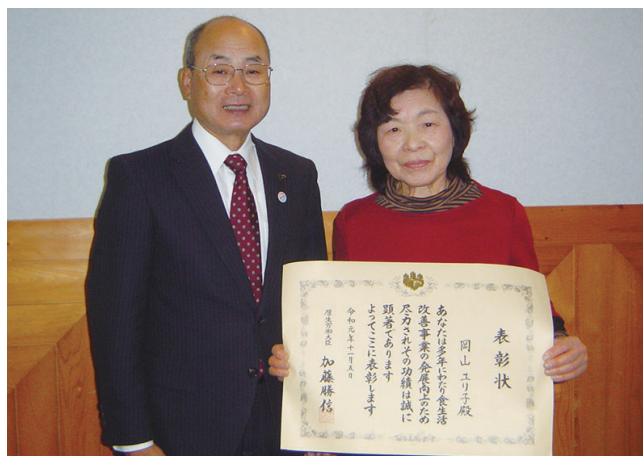 表彰状
岡山 ユリ子殿
あなたは多年にわたり食生活
改善事業の発展向上のため
尽力されその功績は誠に
顕著であります
よってここに表彰します
令和元年十一月五日
厚生労働大臣 加藤勝信